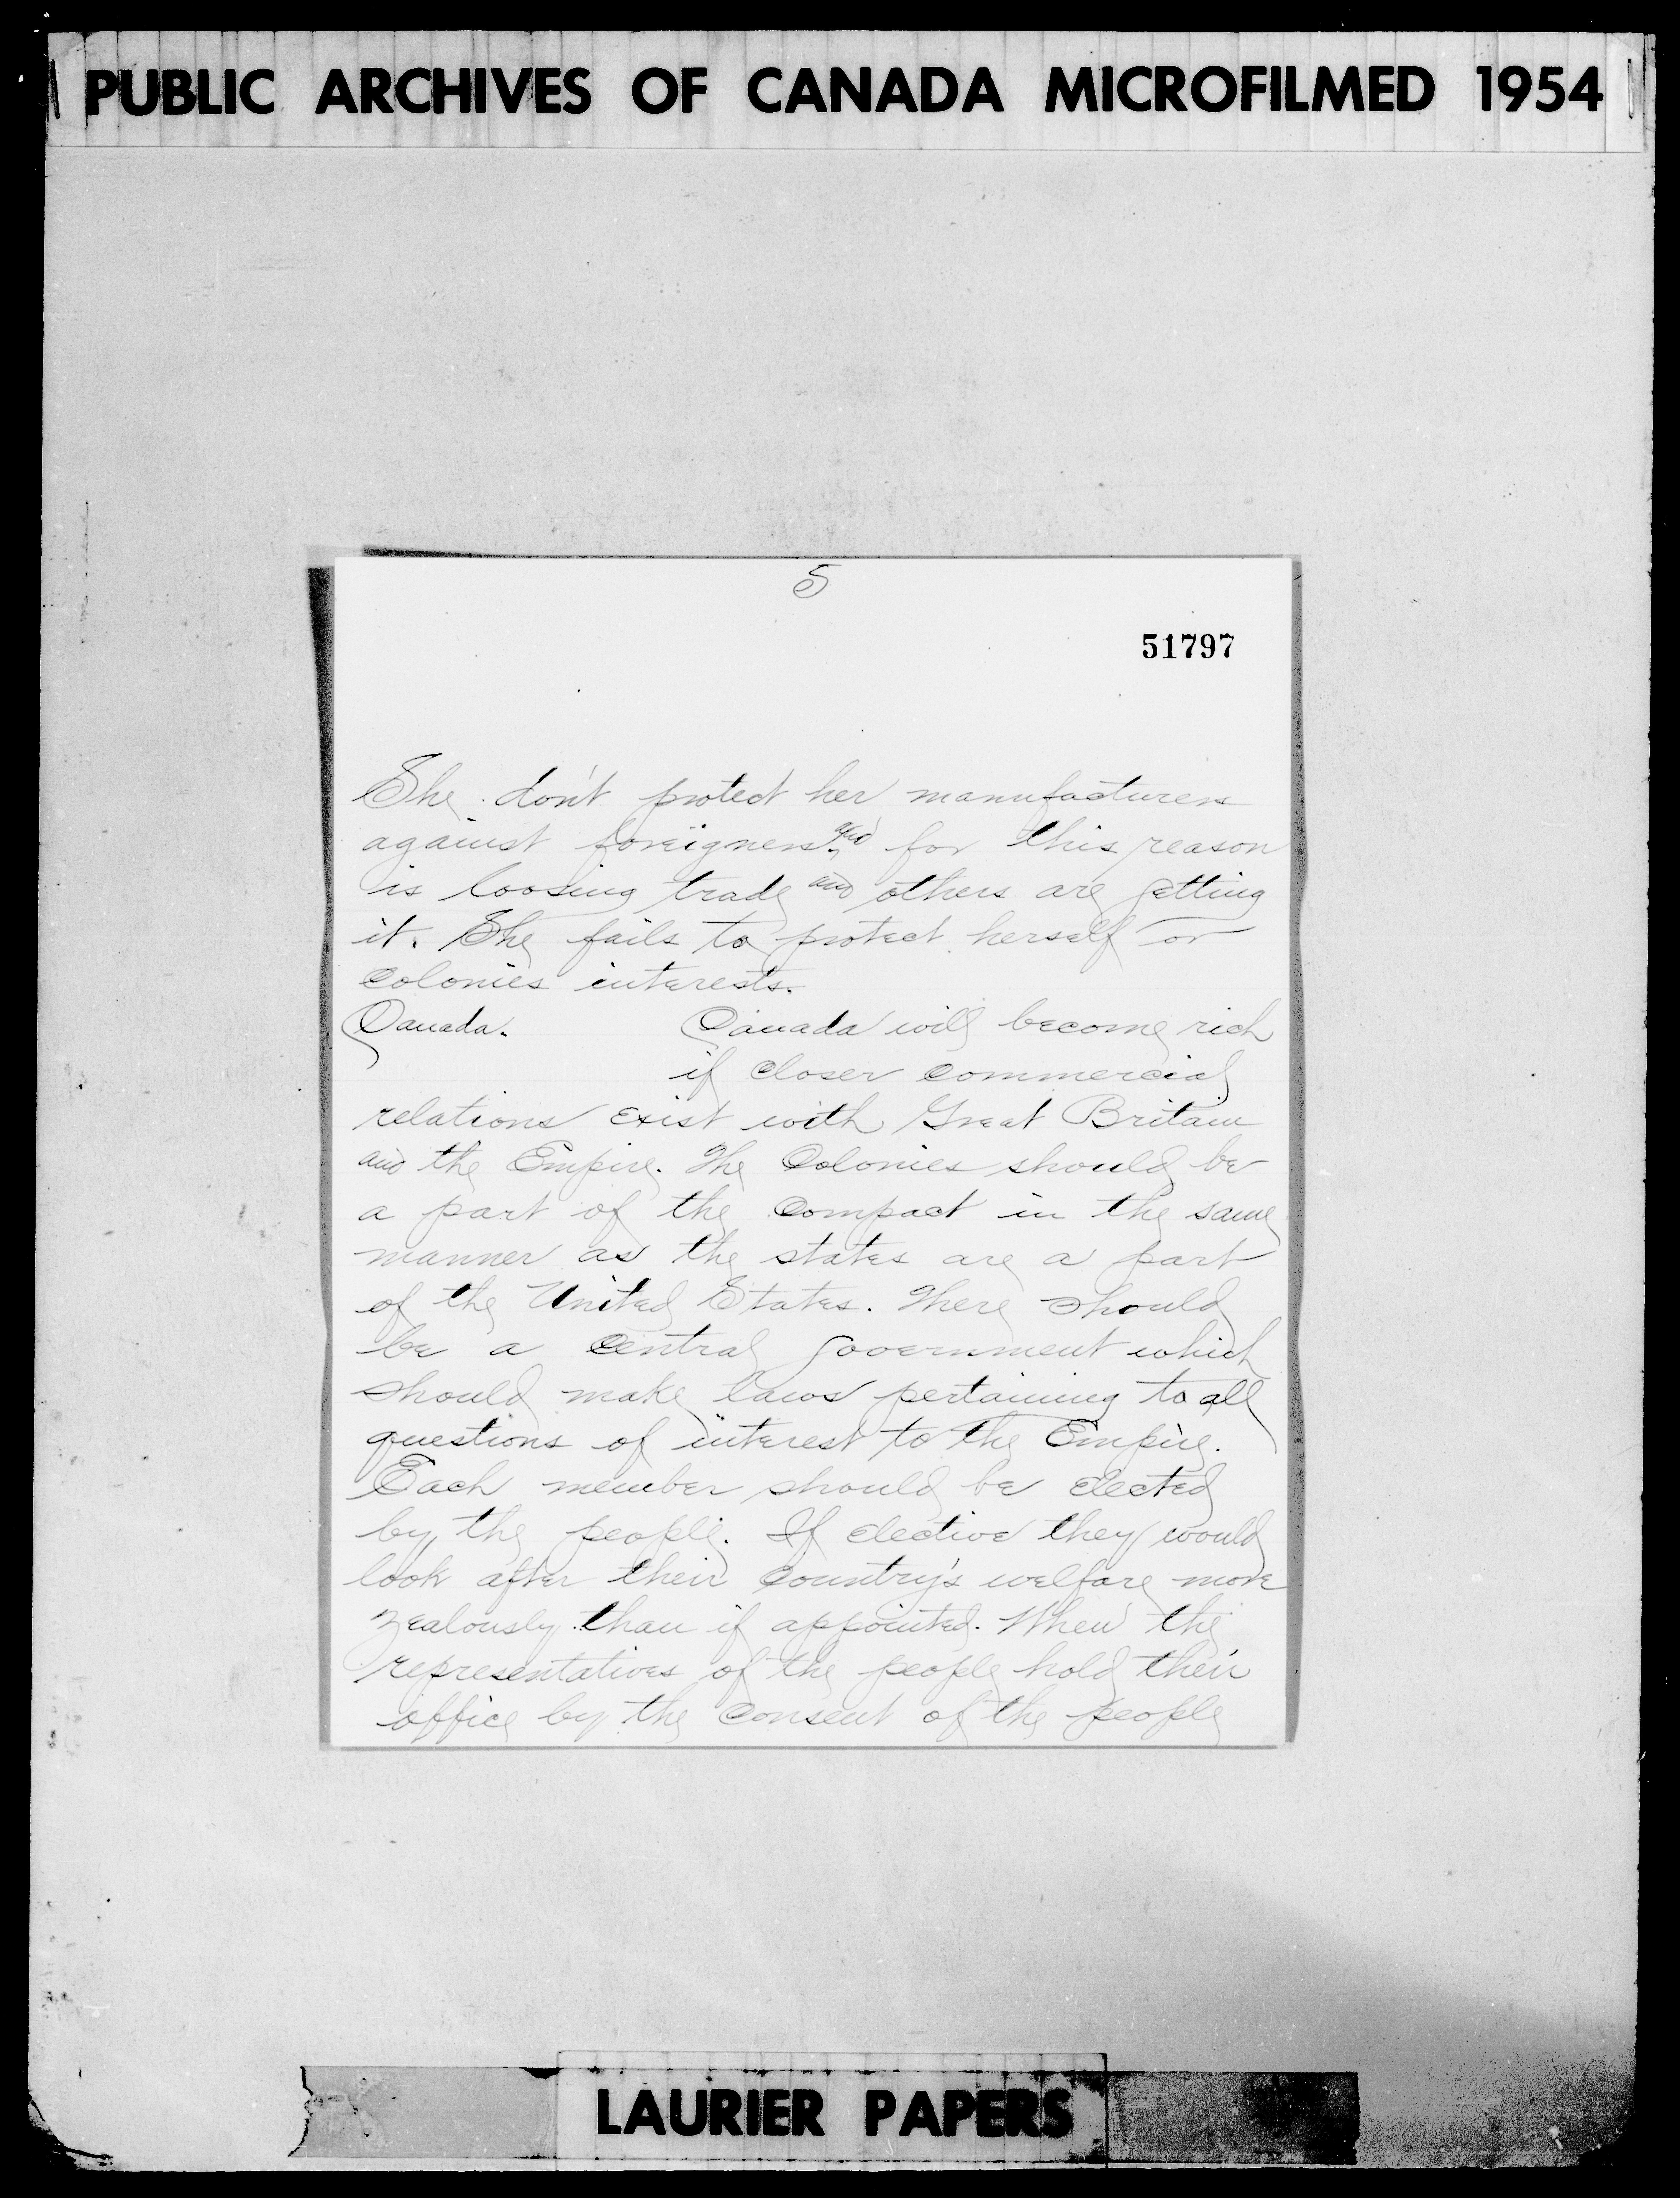 PUBLIC ARCHIVES OF CANADA MICROFILMED 1954
5
51797
She don't protect her manufacturers
against foreigners and for this reason
is loosing trade and others are getting
it. She fails to protect herself or
Colonies interests.
Canada. Canada will become rich
if closer commercial
relations exist with Great Britain
and the Empire. The Colonies should be
a part of the Compact in the same
manner as the states are a part
of the United States. There should
be a Central government which
should make laws pertaining to all
questions of interest to the Empire.
Each member should be elected
by the people. If elective they would
look after their Country's welfare more
zealously than if appointed. When the
representatives of the people hold their
office by the consent of the people
LAURIER PAPERS